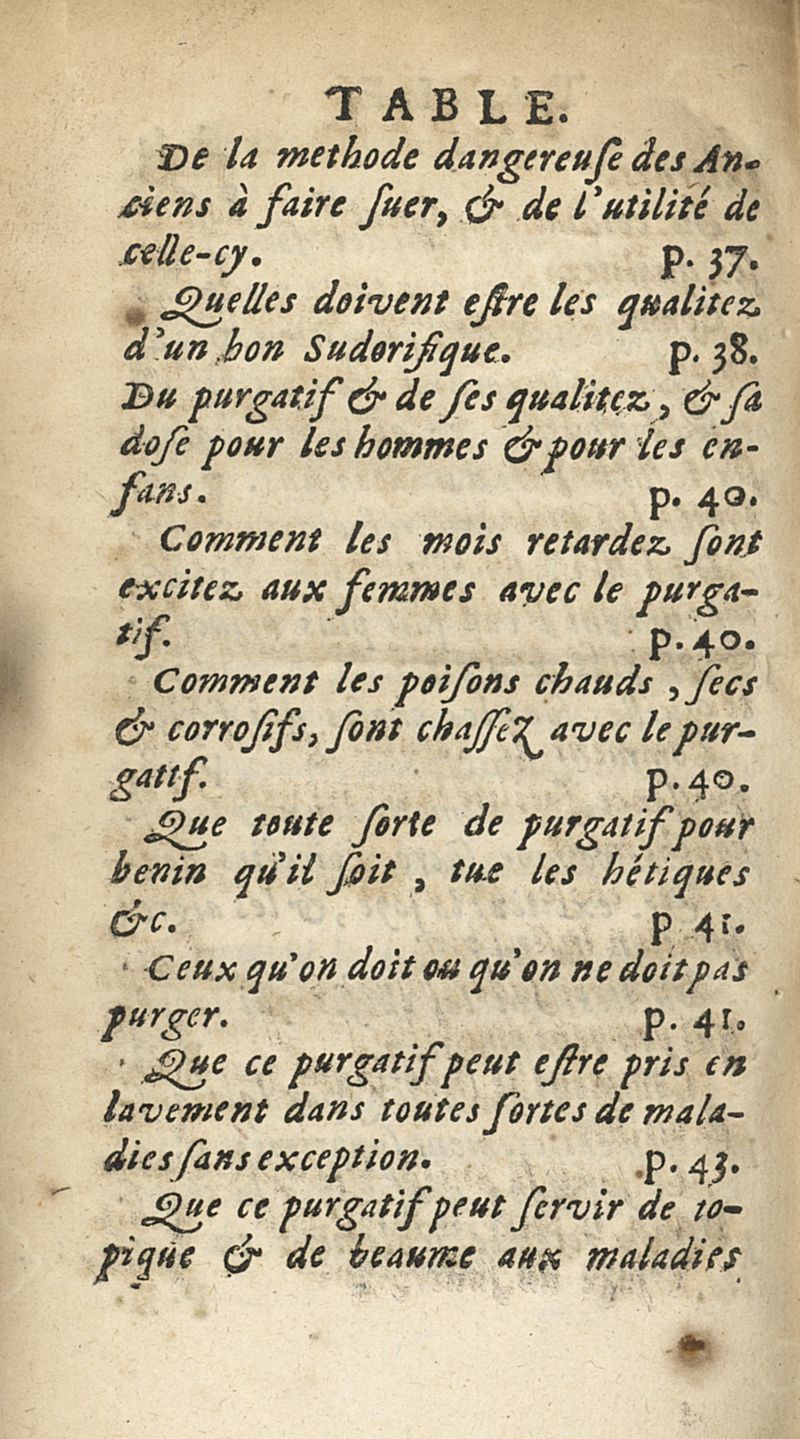 TABLE.
De la methode dangereuſe des An-
ciens à faire ſuer, & de l'utilité de
celle-cy. p. 37.
Quelles doivent eſtre les qualitez
d'un bon Sudorifique. p. 38.
Du purgatif & de ſes qualitez, & ſa
doſe pour les hommes & pour les en-
fans. p. 40.
Comment les mois retardez ſont
excitez aux femmes avec le purga-
tif. p. 40.
Comment les poiſons chauds, ſecs
& corroſifs, ſont chaſſez avec le pur-
gatif. p. 40.
Que toute ſorte de purgatif pour
benin qu'il ſoit, tue les hétiques
&c. p 41.
Ceux qu'on doit ou qu'on ne doit pas
purger. p. 41.
Que ce purgatif peut eſtre pris en
lavement dans toutes ſortes de mala-
dies ſans exception. p. 43.
Que ce purgatif peut ſervir de to-
pique & de beaume aux maladies